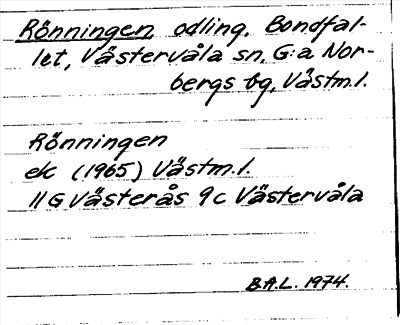 Rönningen, odling, Bondfal-
let, Västervåla sn, G:a Nor-
bergs bg, Västm.l.
Rönningen
ek (1965) Västm.l.
11 G Västerås 9 c Västervåla
B.A.L. 1974.